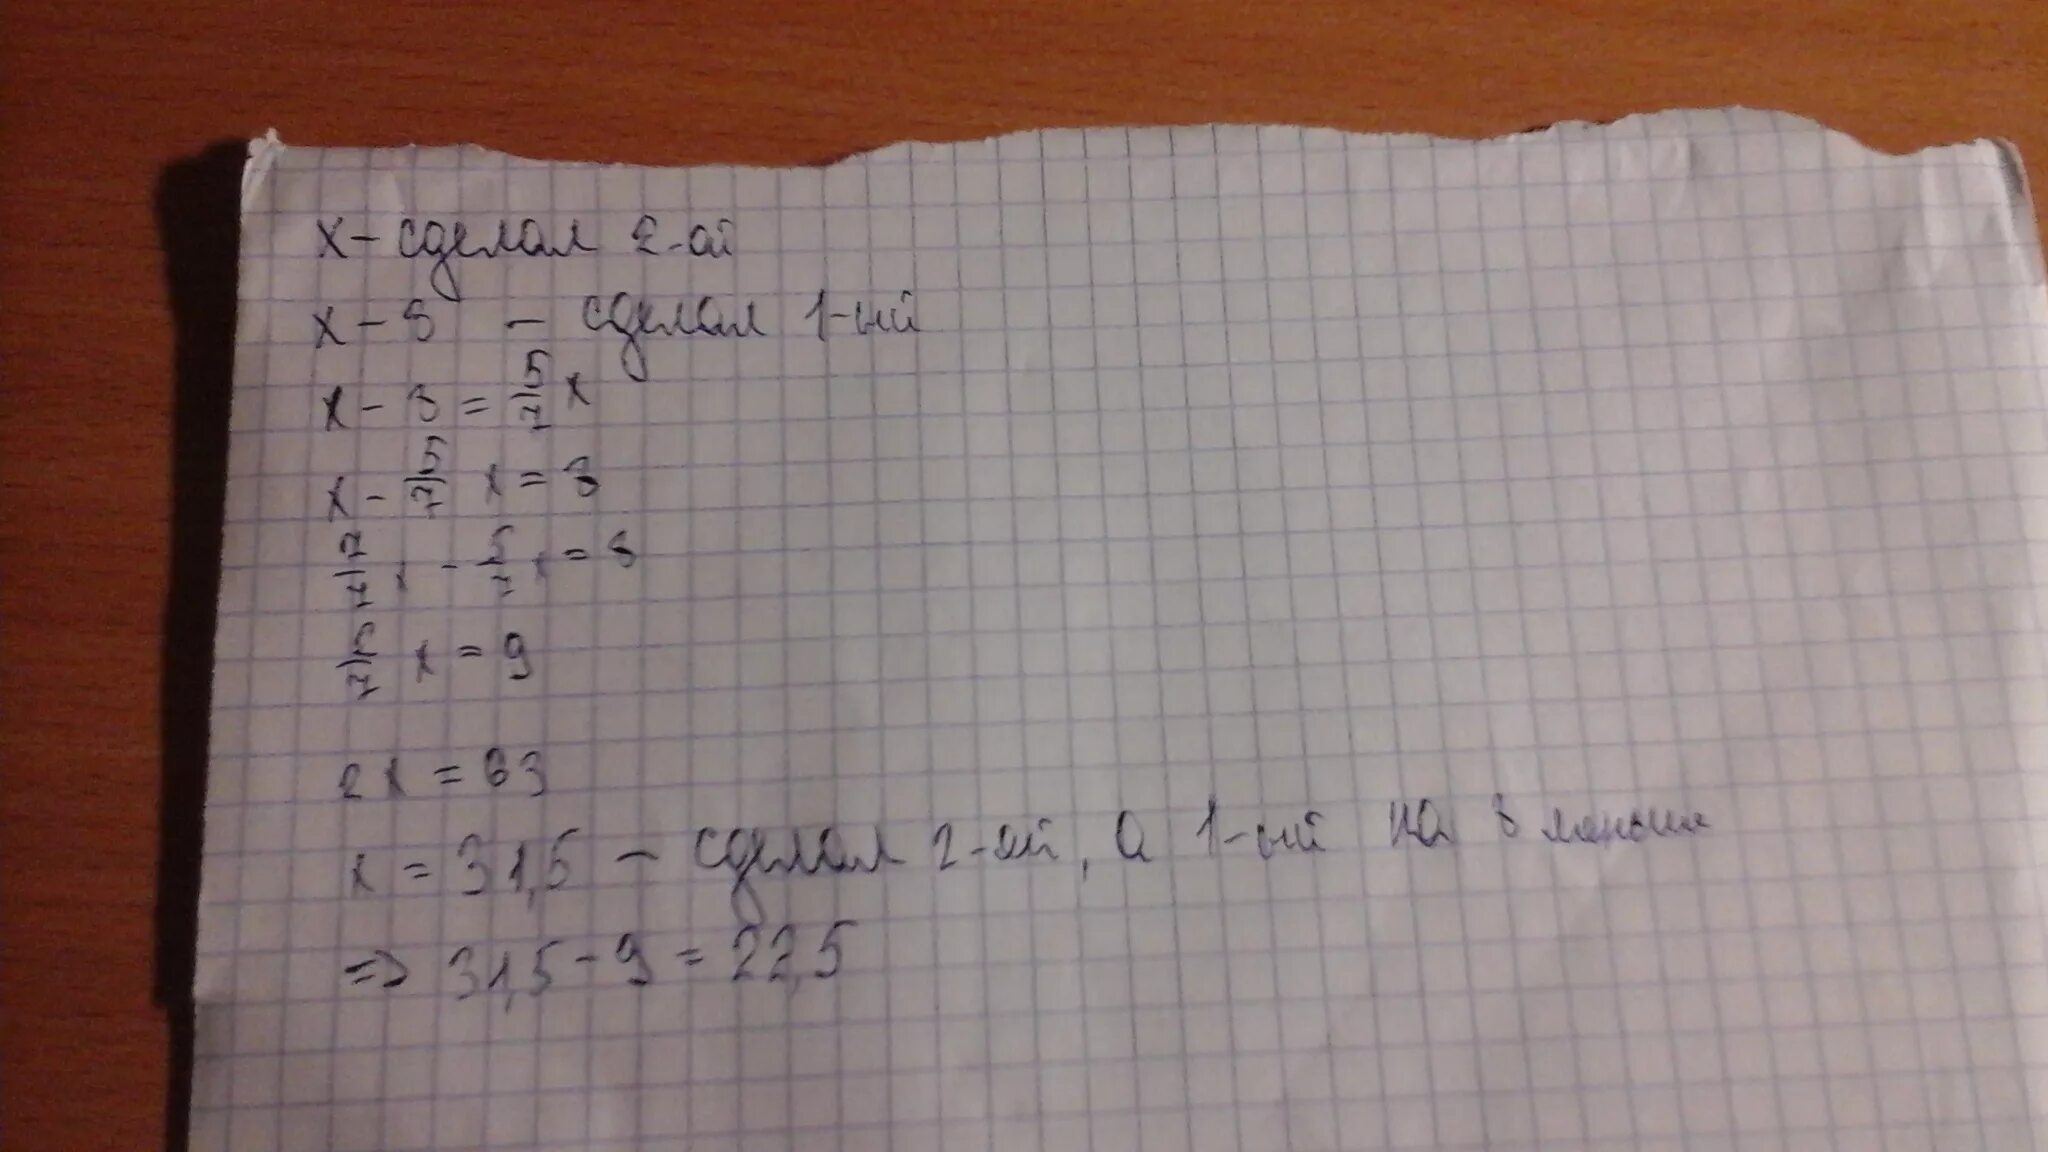 x – сделал 2-ой
x – 8 – сделал 1-ый
x – 8 = 5/7 x
x – 5/7 x = 8
7/7 x – 5/7 x = 8
2/7 x = 9
2x = 63
x = 31,5 – сделал 2-ой, а 1-ый на 8 меньше
=> 31,5 – 9 = 22,5